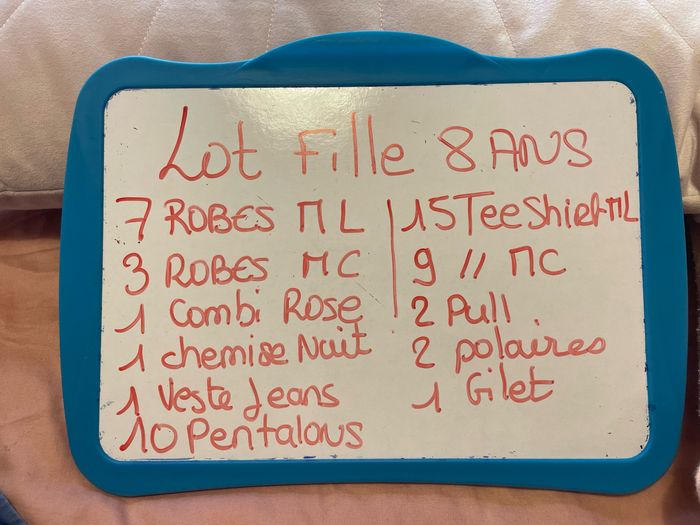 Lot Fille 8 ANS
7 ROBES ML
3 ROBES MC
1 Combi Rose
1 chemise Nuit
1 Veste Jeans
10 Pentalous
15 TeeShirt ML
9 // MC
2 Pull
2 polaires
1 Gilet